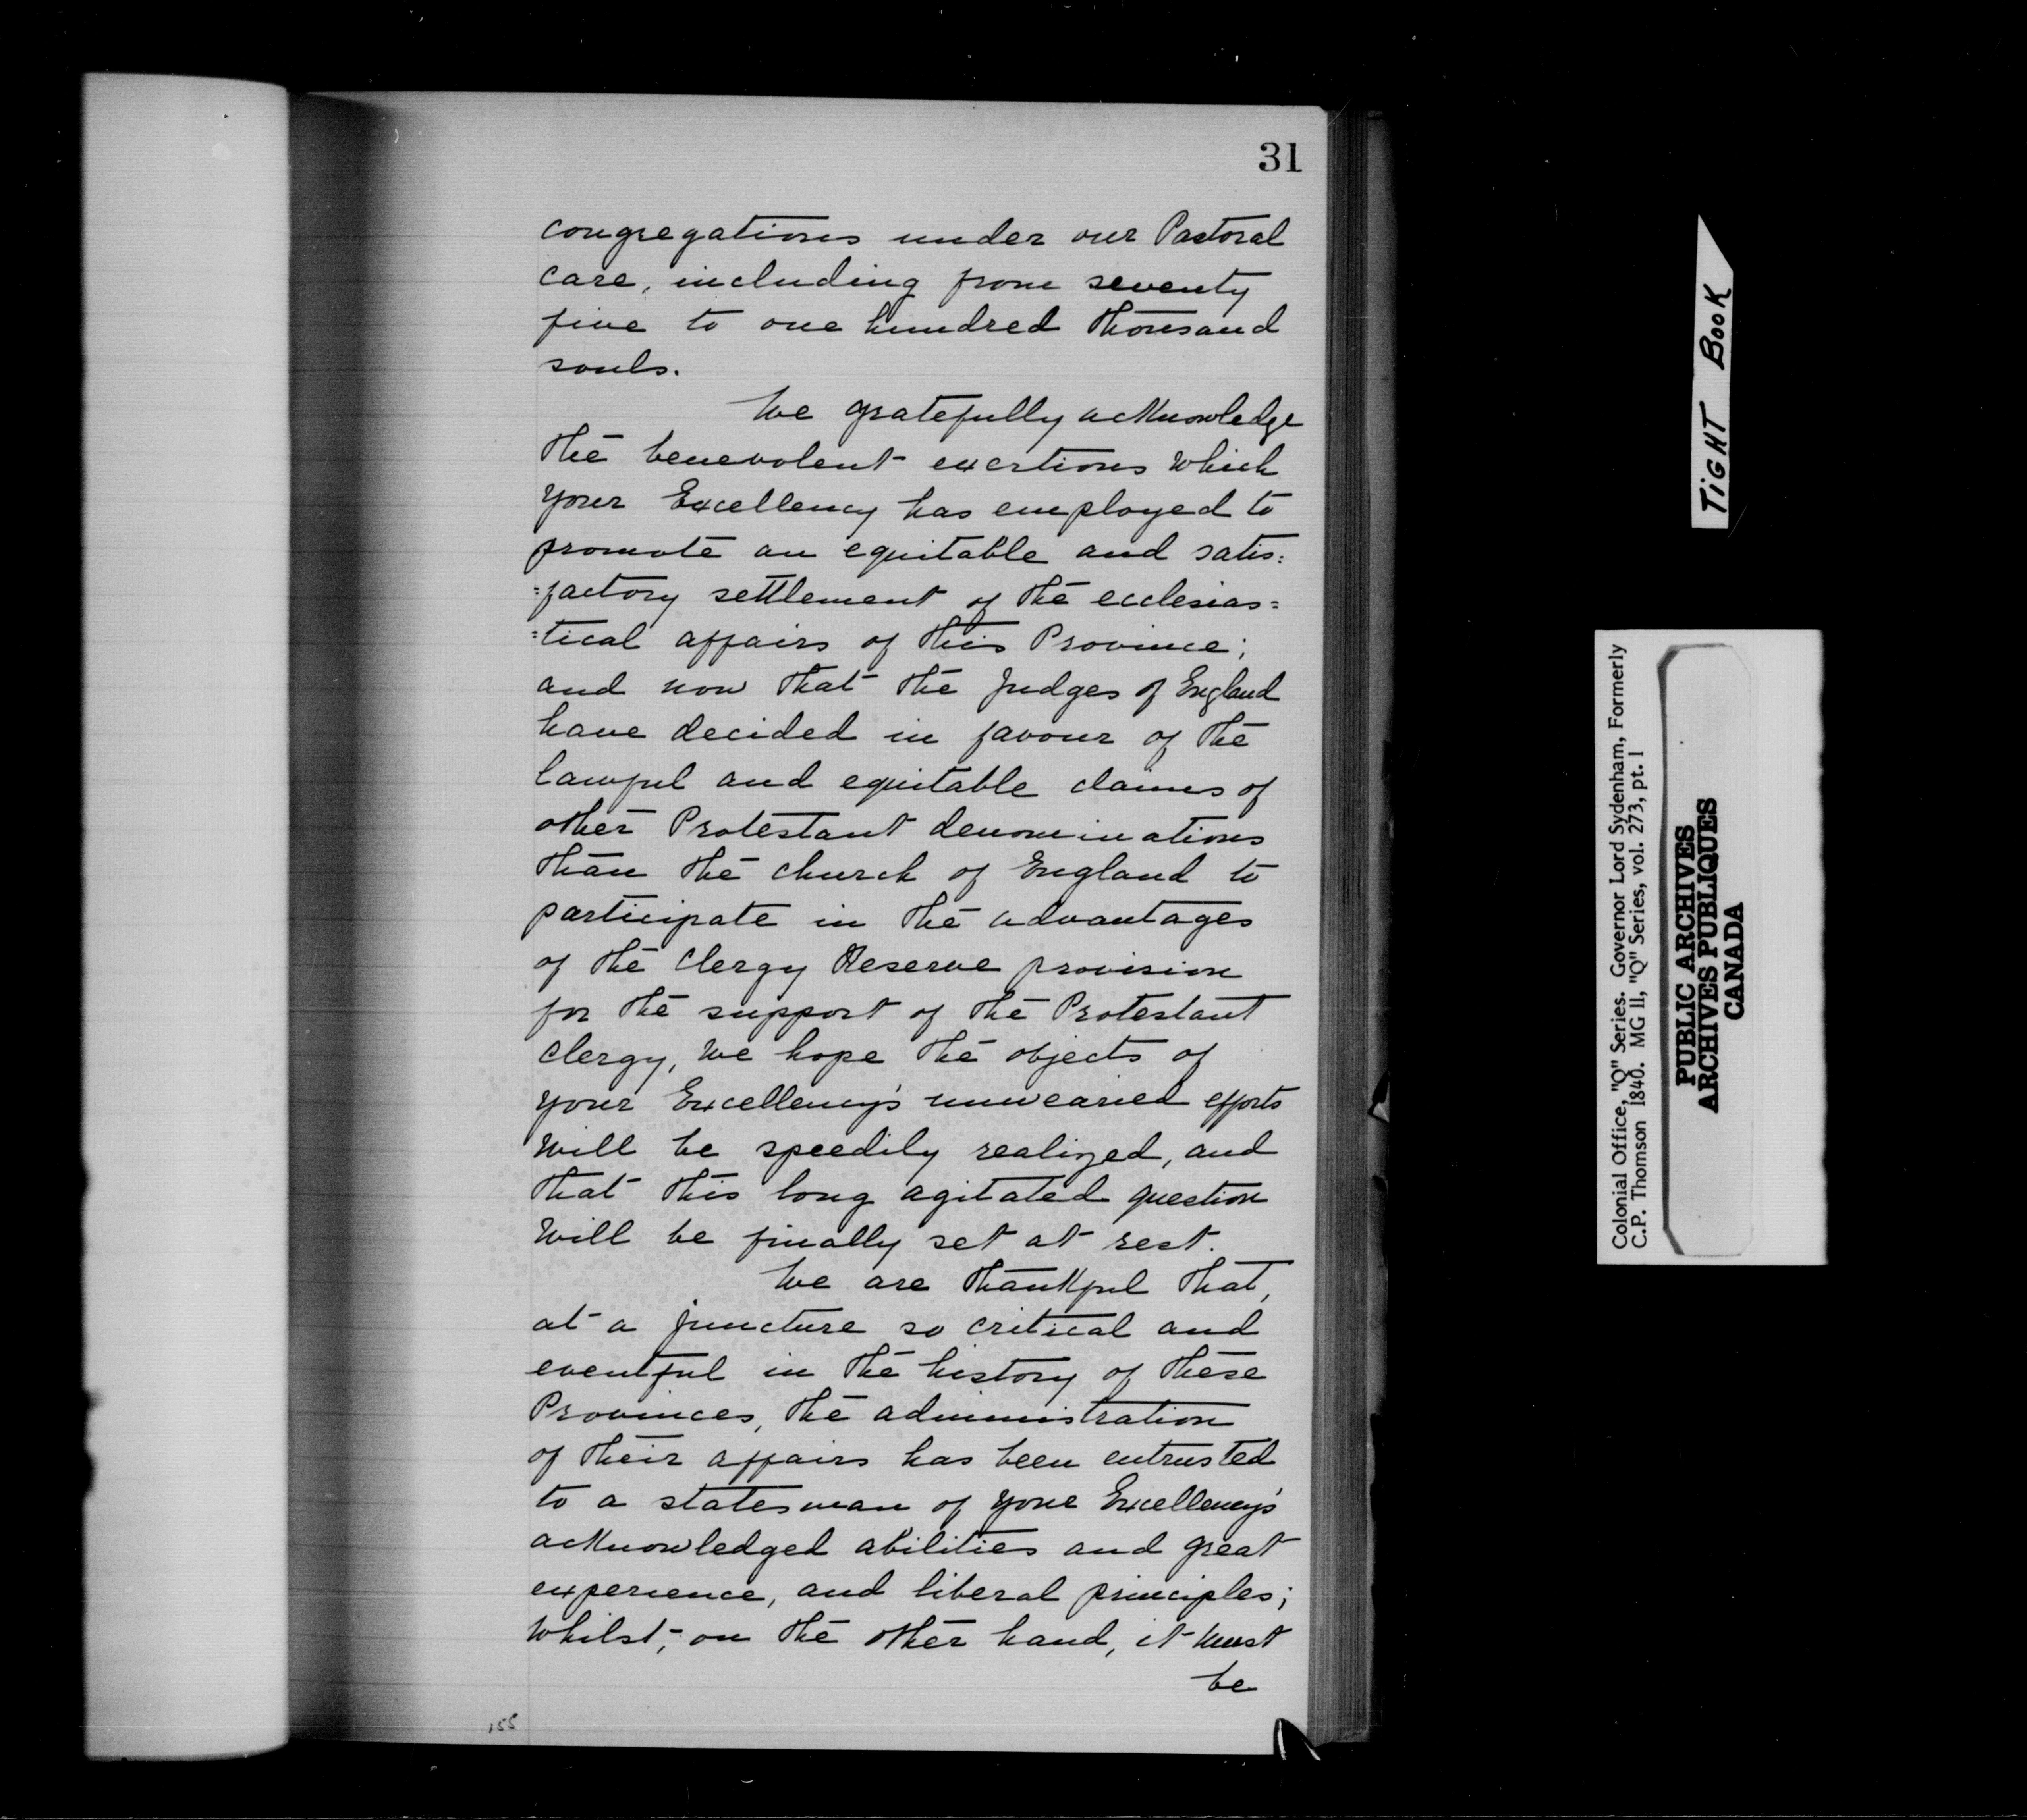 31
congregations under our Pastoral
care, including from seventy
five to one hundred thousand
souls.
We gratefully acknowledge
the benevolent exertions which
your Excellency has employed to
promote an equitable and satis=
=factory settlement of the ecclesias=
=tical affairs of this Province;
and now that the Judges of England
have decided in favour of the
lawful and equitable claims of
other Protestant denominations
than the church of England to
participate in the advantages
of the Clergy Reserve provision
for the support of the Protestant
Clergy, we hope the objects of
your Excellency's unwearied efforts
will be speedily realized, and
that this long agitated question
will be finally set at rest.
We are thankful that,
at a juncture so critical and
eventful in the history of these
Provinces, the administration
of their affairs has been entrusted
to a statesman of your Excellency's
acknowledged abilities and great
experience, and liberal principles;
whilst, on the other hand, it must
be
155
TIGHT BOOK
Colonial Office, "Q" Series. Governor Lord Sydenham, Formerly
C.P. Thomson 1840. MG 11, "Q" Series, vol. 273, pt. 1
PUBLIC ARCHIVES
ARCHIVES PUBLIQUES
CANADA